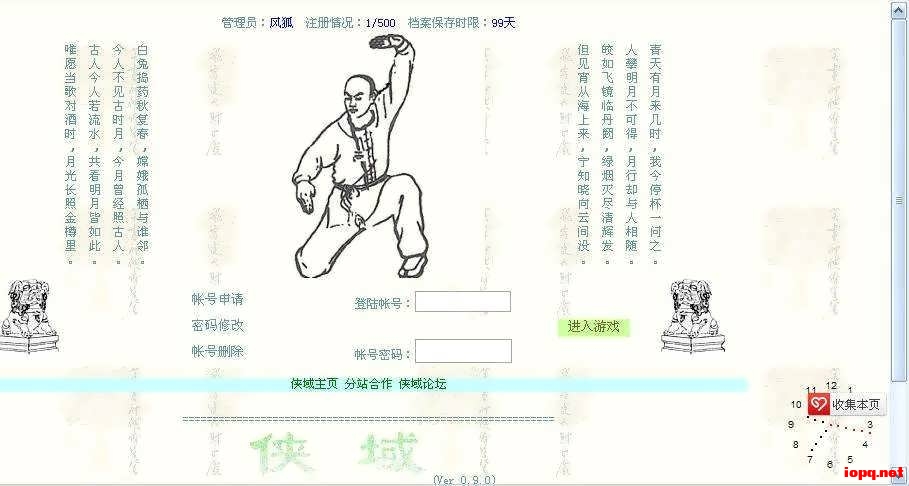 管理员：风狐 注册情况：1/500 档案保存时限：99天
青天有月来几时，我今停杯一问之。
人攀明月不可得，月行却与人相随。
皎如飞镜临丹阙，绿烟灭尽清辉发。
但见宵从海上来，宁知晓向云间没。
白兔捣药秋复春，嫦娥孤栖与谁邻。
今人不见古时月，今月曾经照古人。
古人今人若流水，共看明月皆如此。
唯愿当歌对酒时，月光长照金樽里。
帐号申请
登陆帐号：
密码修改
进入游戏
帐号删除
帐号密码：
侠域主页 分站合作 侠域论坛
侠 域
(Ver 0.9.0)
11 12 1
10
收集本页
9 3
8 4
7 6 5
iopq.net